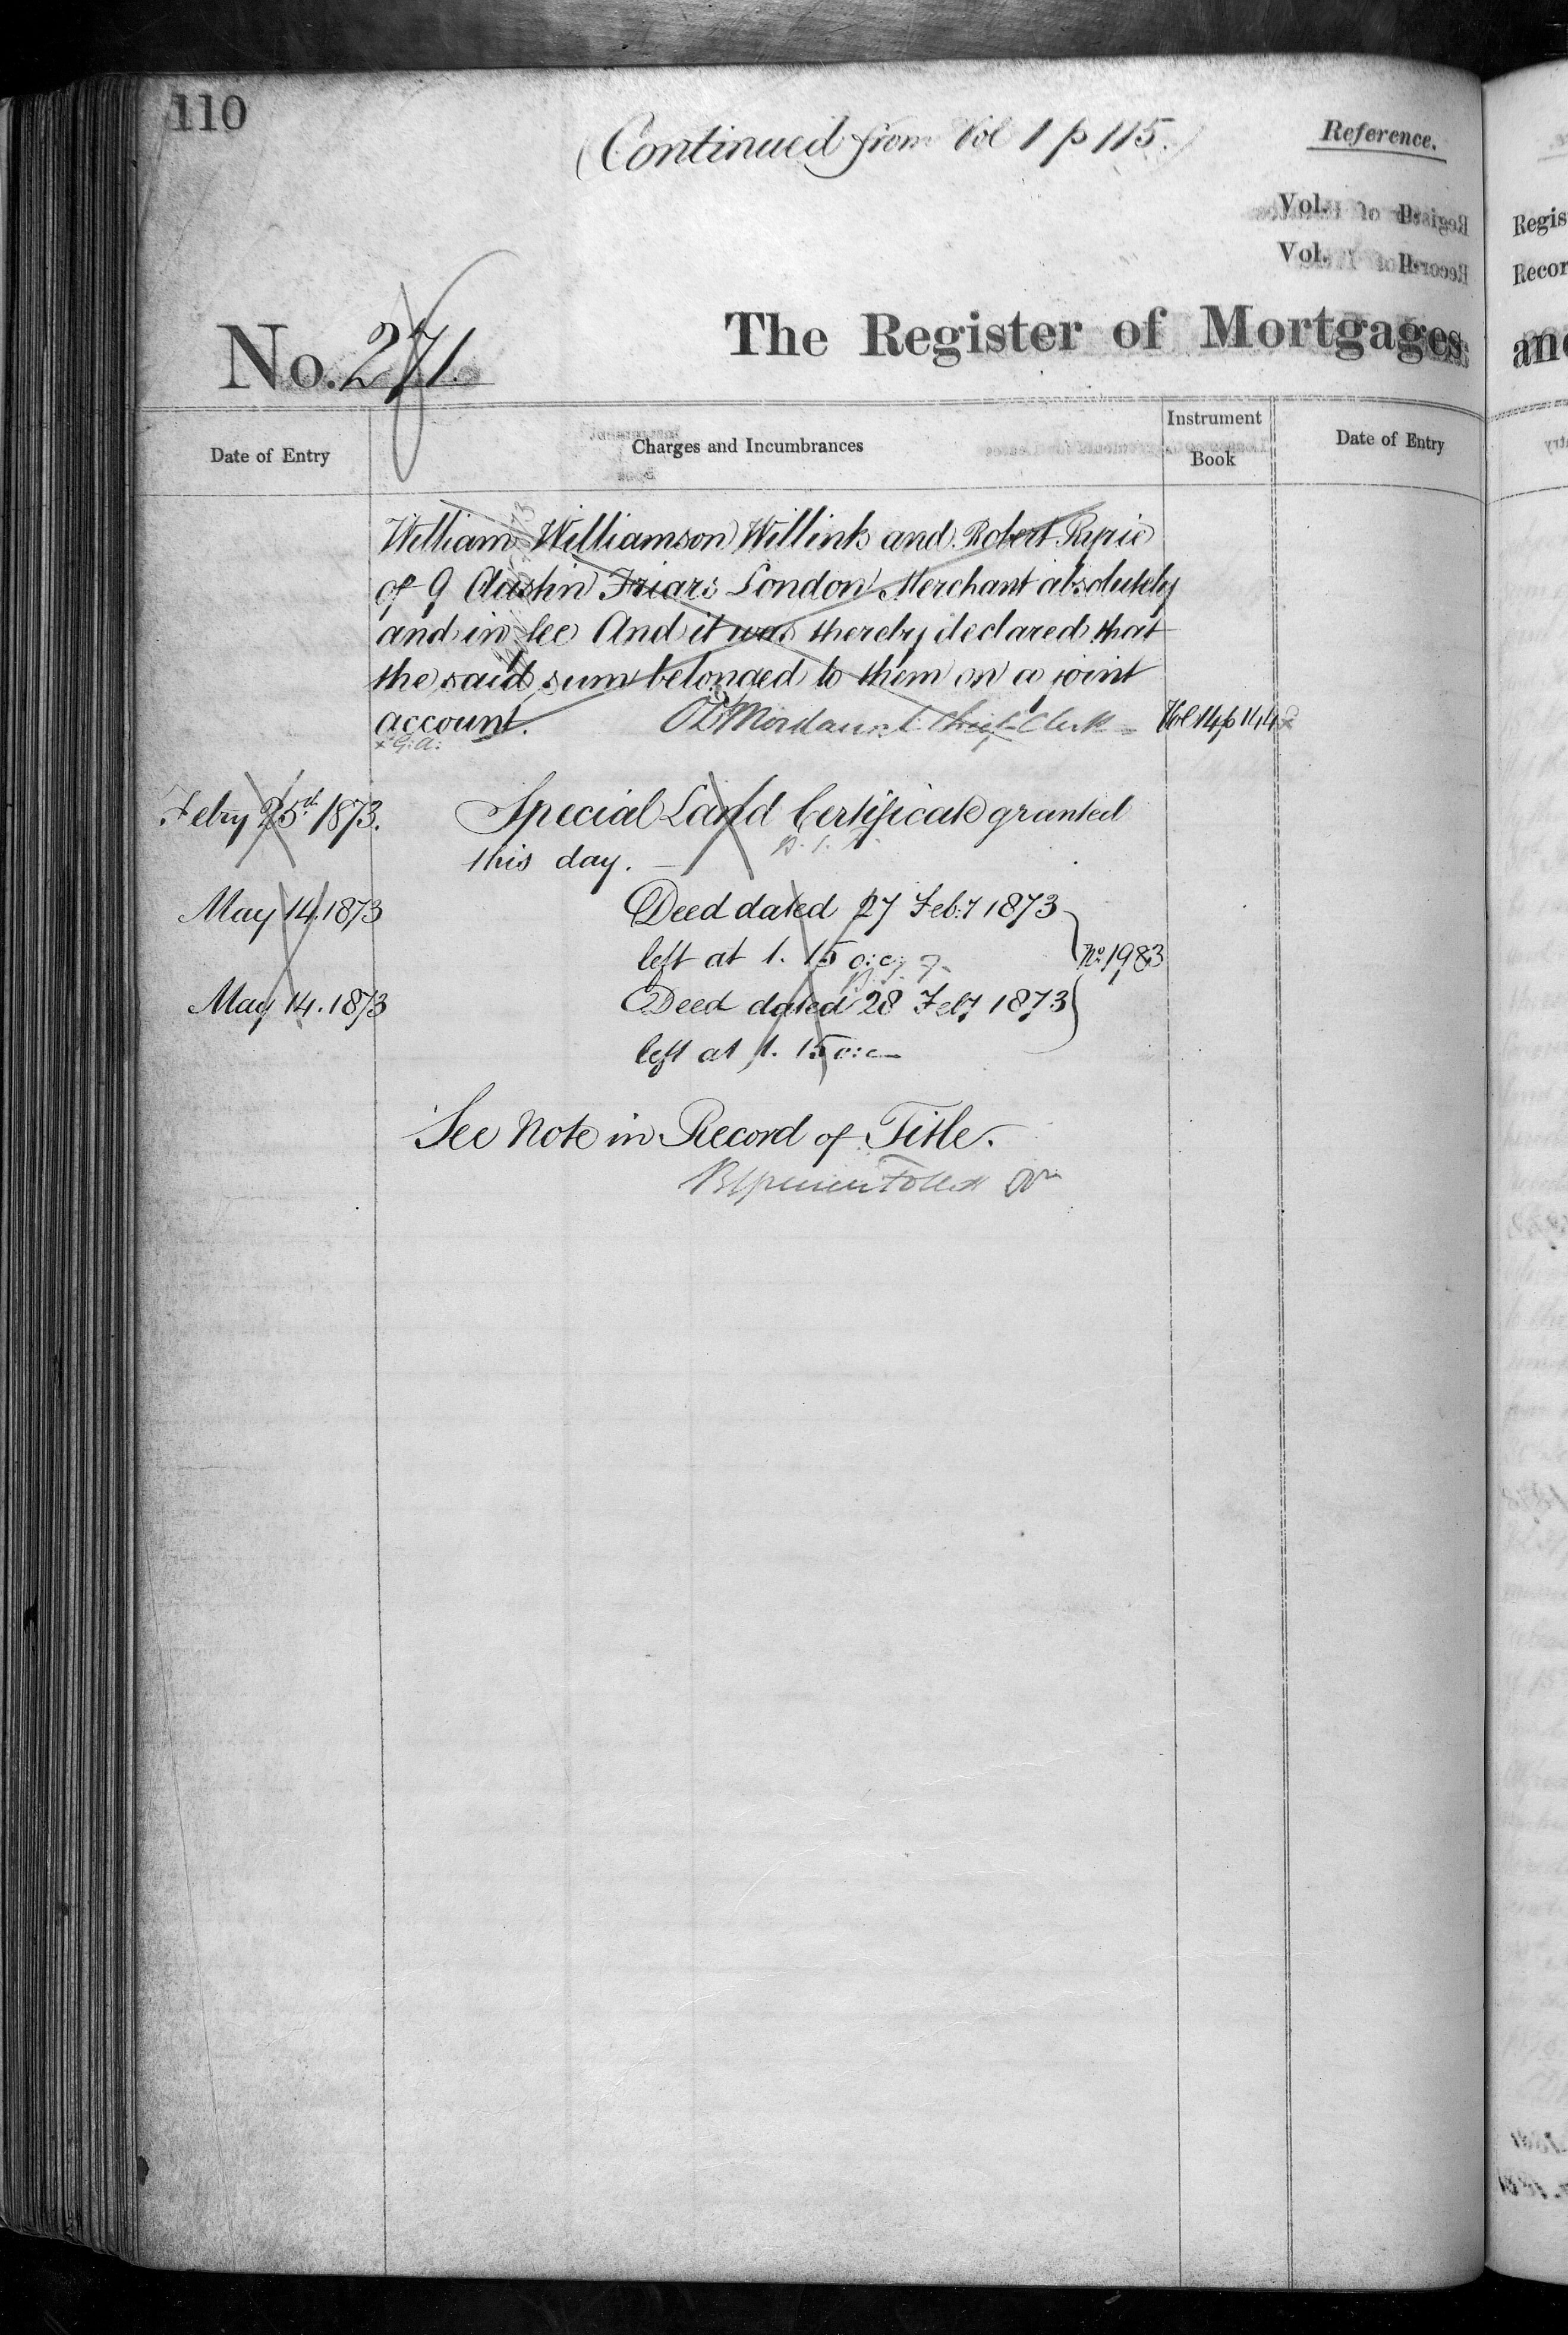 110
(Continued from Vol 1 p 115.)
Reference.
Vol. P.
Vol. P.
No. 271.
The Register of Mortgages
Date of Entry
Charges and Incumbrances
Instrument Book
Date of Entry
William Williamson Willink and Robert Ryrie
of 9 Austin Friars London Merchant absolutely
and in fee And it was thereby declared that
the said sum belonged to them on a joint
account. Mordaunt Chief Clerk Vol 14 p 144
x G.A:
Febry 25th 1873. Special Land Certificate granted
this day.
May 14. 1873 Deed dated 27 Feb:y 1873
left at 1. 15 o:c: No. 1983
May 14. 1873 Deed dated 28 Feby 1873
left at 1. 15 o:c
See Note in Record of Title.
Regis
Recor
and